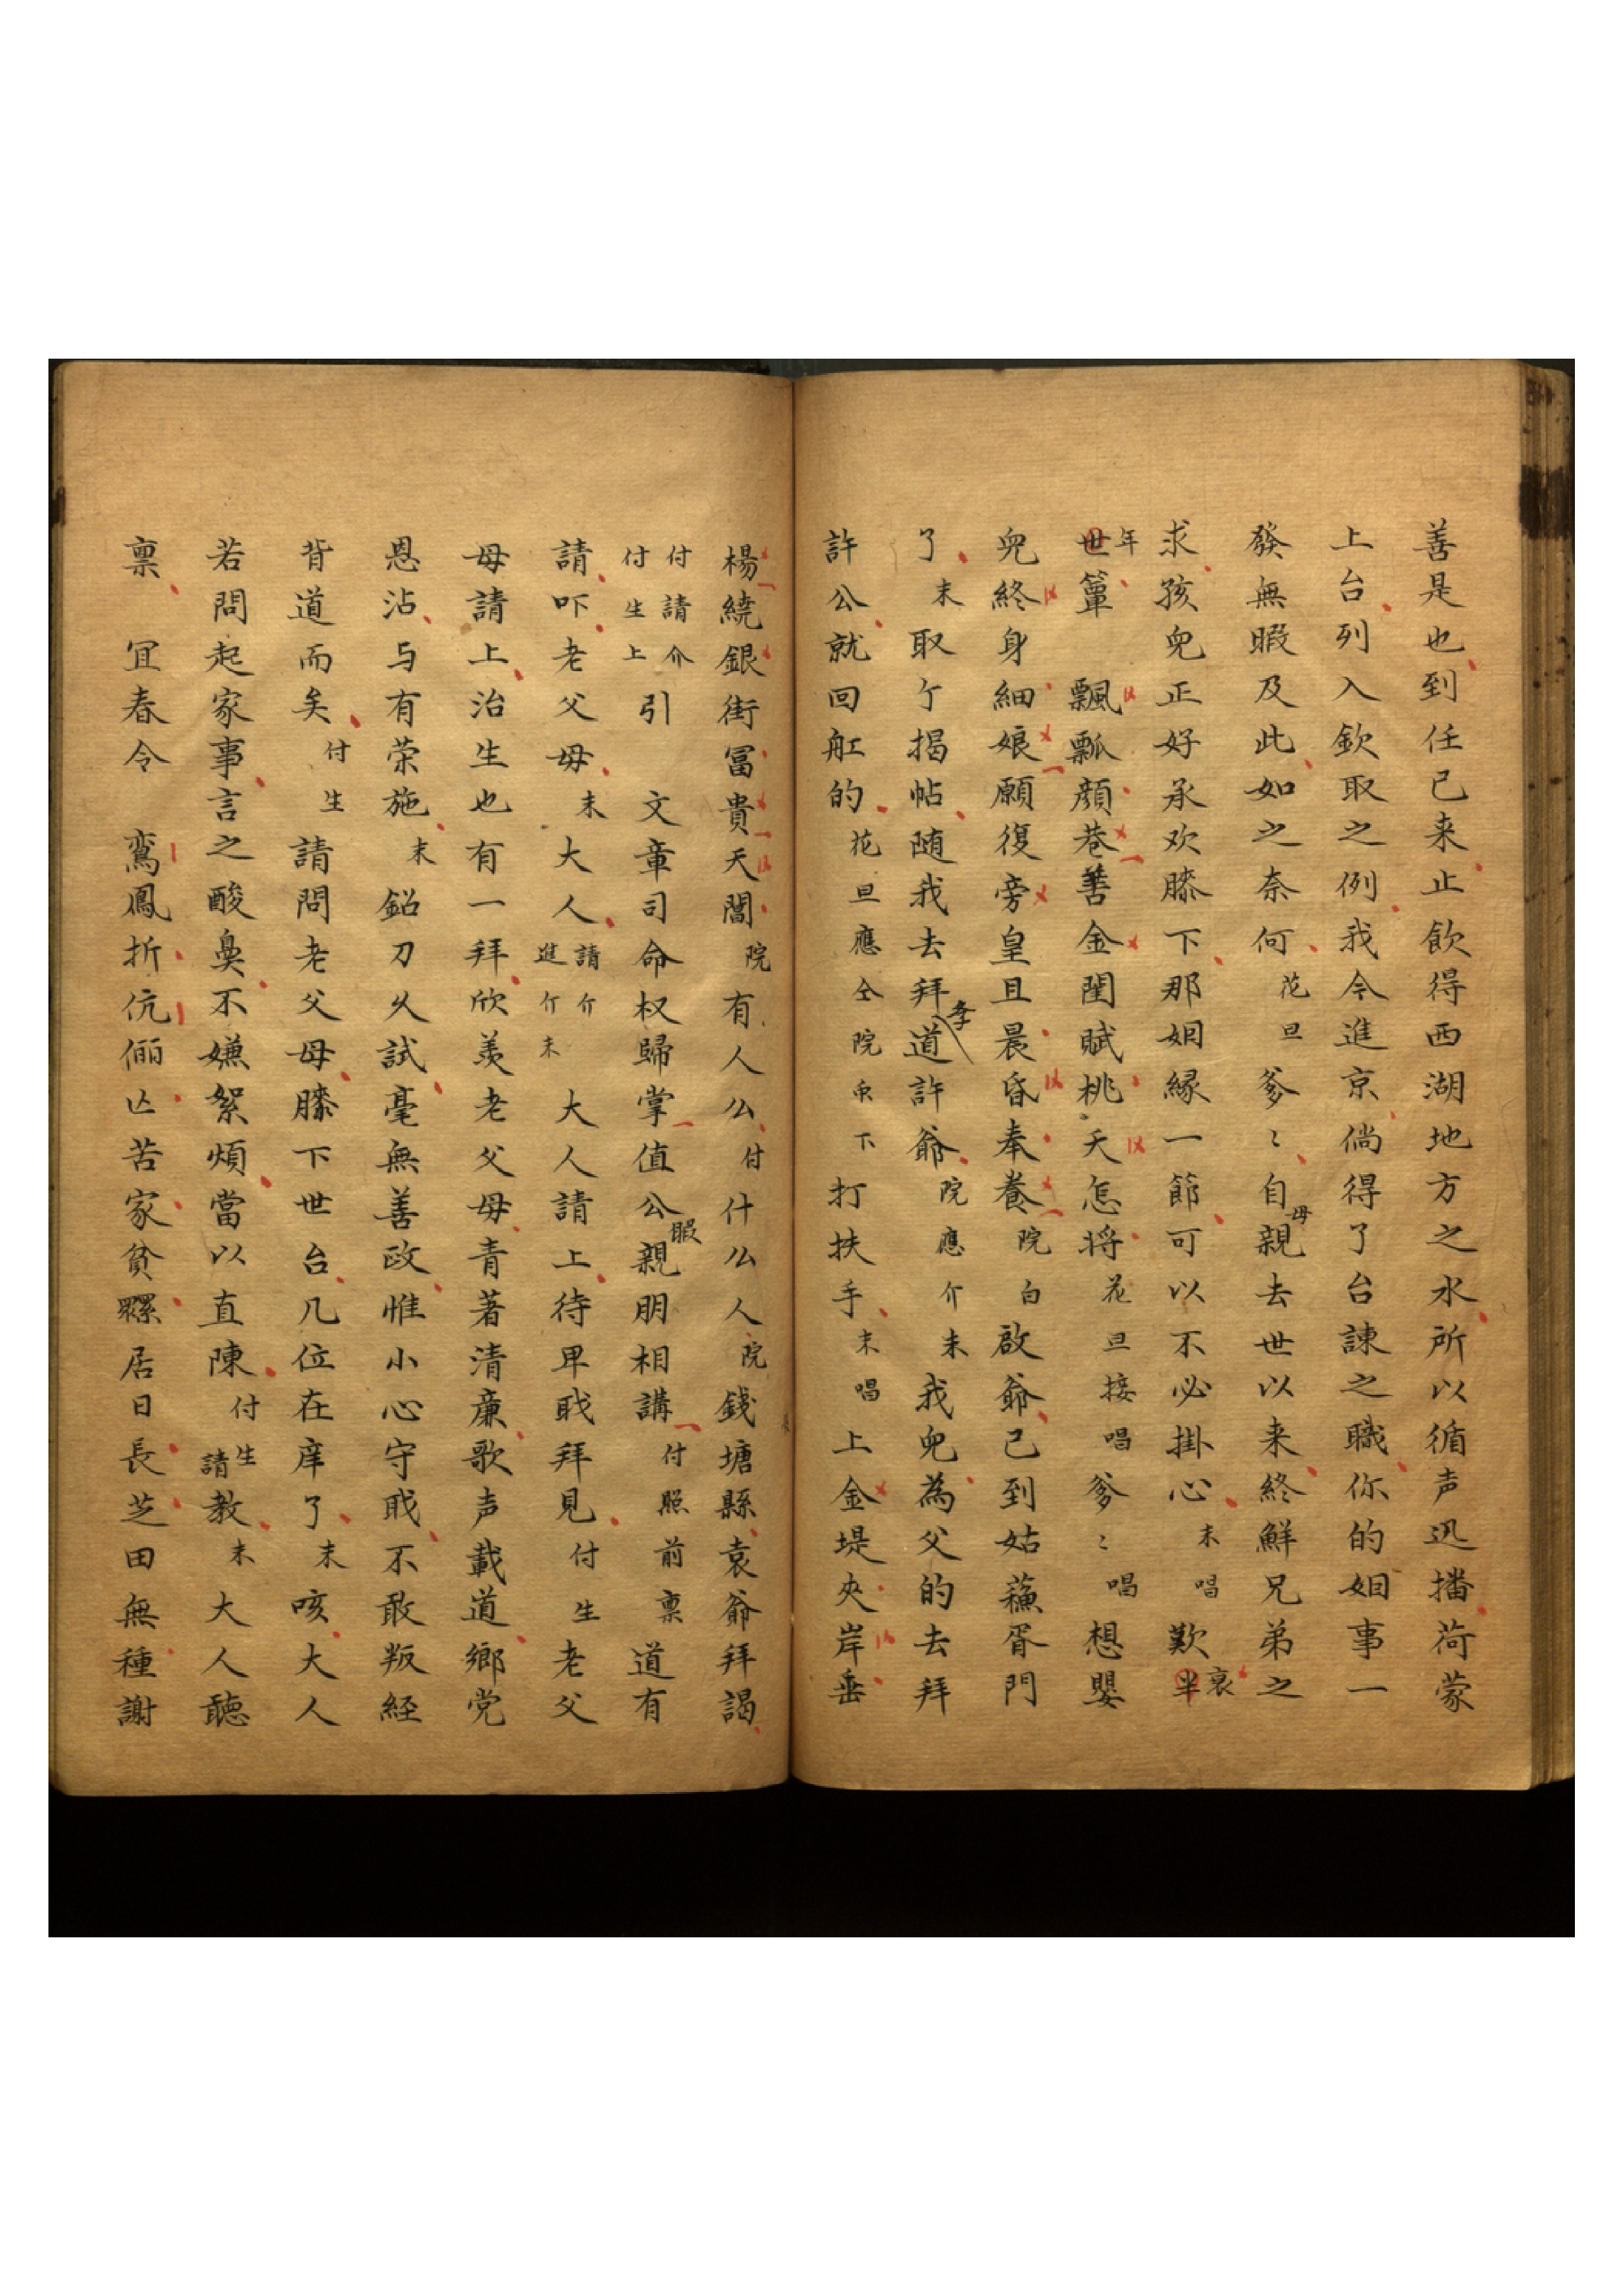 善是也到任已来止飲得西湖地方之水所以循声迅播荷蒙
上台列入欽取之例我今進京倘得了台諫之職你的姻事一
發無暇及此如之奈何花旦爹〻自母親去世以来終鮮兄弟之
求孩兒正好承欢膝下那姻緣一節可以不必掛心末唱歎衰半
年世簞飄瓢顏巷善金閨賦桃夭怎将花旦接唱爹〻唱想嬰
兒終身細娘願復旁皇且晨昏奉養院白啟爺已到姑蘓胥門
了末取亇揭帖随我去拜道李許爺院應介末我兒為父的去拜
許公就回舡的花旦應仝院下打扶手末唱上金堤夾岸垂
楊繞銀街冨貴天闊院有人么付什么人院錢塘縣袁爺拜謁
付請介付生上引文章司命权歸掌值公暇親朋相講付照前禀道有
請吓老父母末大人請介進介末大人請上待卑戝拜見付生老父
母請上治生也有一拜欣羡老父母青著清廉歌声載道鄉党
恩沾与有荣施末鉛刀乆試毫無善政惟小心守戝不敢叛経
背道而矣付生請問老父母膝下世台几位在庠了末咳大人
若問起家事言之酸鼻不嫌絮煩當以直陳付生請教末大人聽
禀宜春令鸞鳳折伉儷亾苦家貧縲居日長芝田無種謝